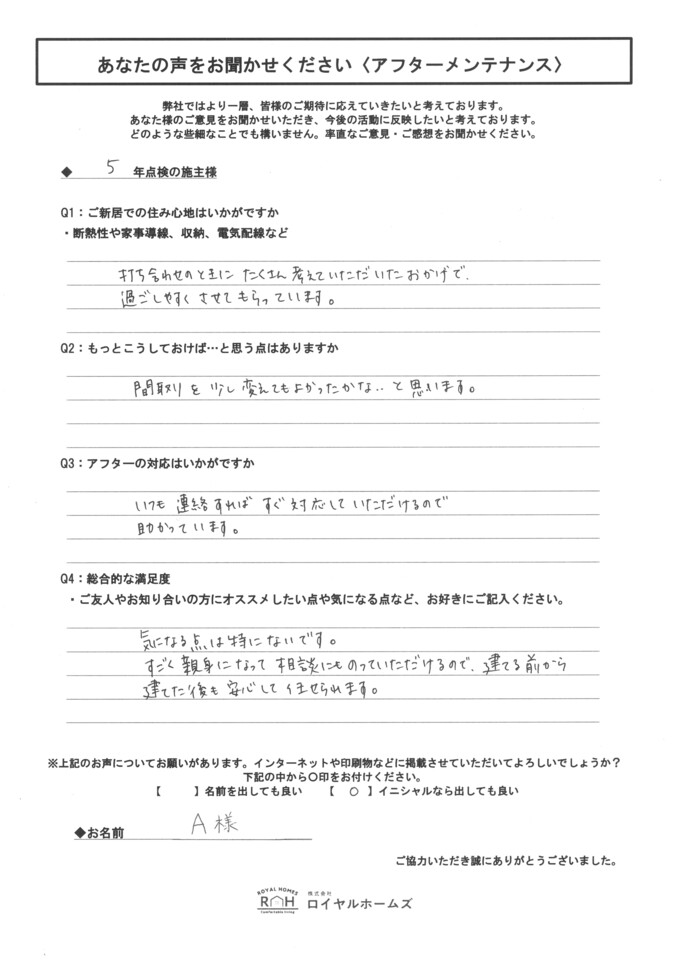 あなたの声をお聞かせください〈アフターメンテナンス〉
弊社ではより一層、皆様のご期待に応えていきたいと考えております。
あなた様のご意見をお聞かせいただき、今後の活動に反映したいと考えております。
どのような些細なことでも構いません。率直なご意見・ご感想をお聞かせください。
◆ 5 年点検の施主様
Q1：ご新居での住み心地はいかがですか
・断熱性や家事導線、収納、電気配線など
打ち合わせのときに たくさん 考えていただいたおかげで、
過ごしやすく させてもらっています。
Q2：もっとこうしておけば…と思う点はありますか
間取りを 少し 変えてもよかったかな‥と思います。
Q3：アフターの対応はいかがですか
いつも 連絡すれば すぐ対応して いただけるので
助かっています。
Q4：総合的な満足度
・ご友人やお知り合いの方にオススメしたい点や気になる点など、お好きにご記入ください。
気になる点は特にないです。
すごく親身になって 相談にものっていただけるので、建てる前から
建てた後も 安心して任せられます。
※上記のお声についてお願いがあります。インターネットや印刷物などに掲載させていただいてよろしいでしょうか？
下記の中から〇印をお付けください。
【　　】名前を出しても良い 【 〇 】イニシャルなら出しても良い
◆お名前 A様
ご協力いただき誠にありがとうございました。
ROYAL HOMES
RH
Comfortable living
株式会社
ロイヤルホームズ